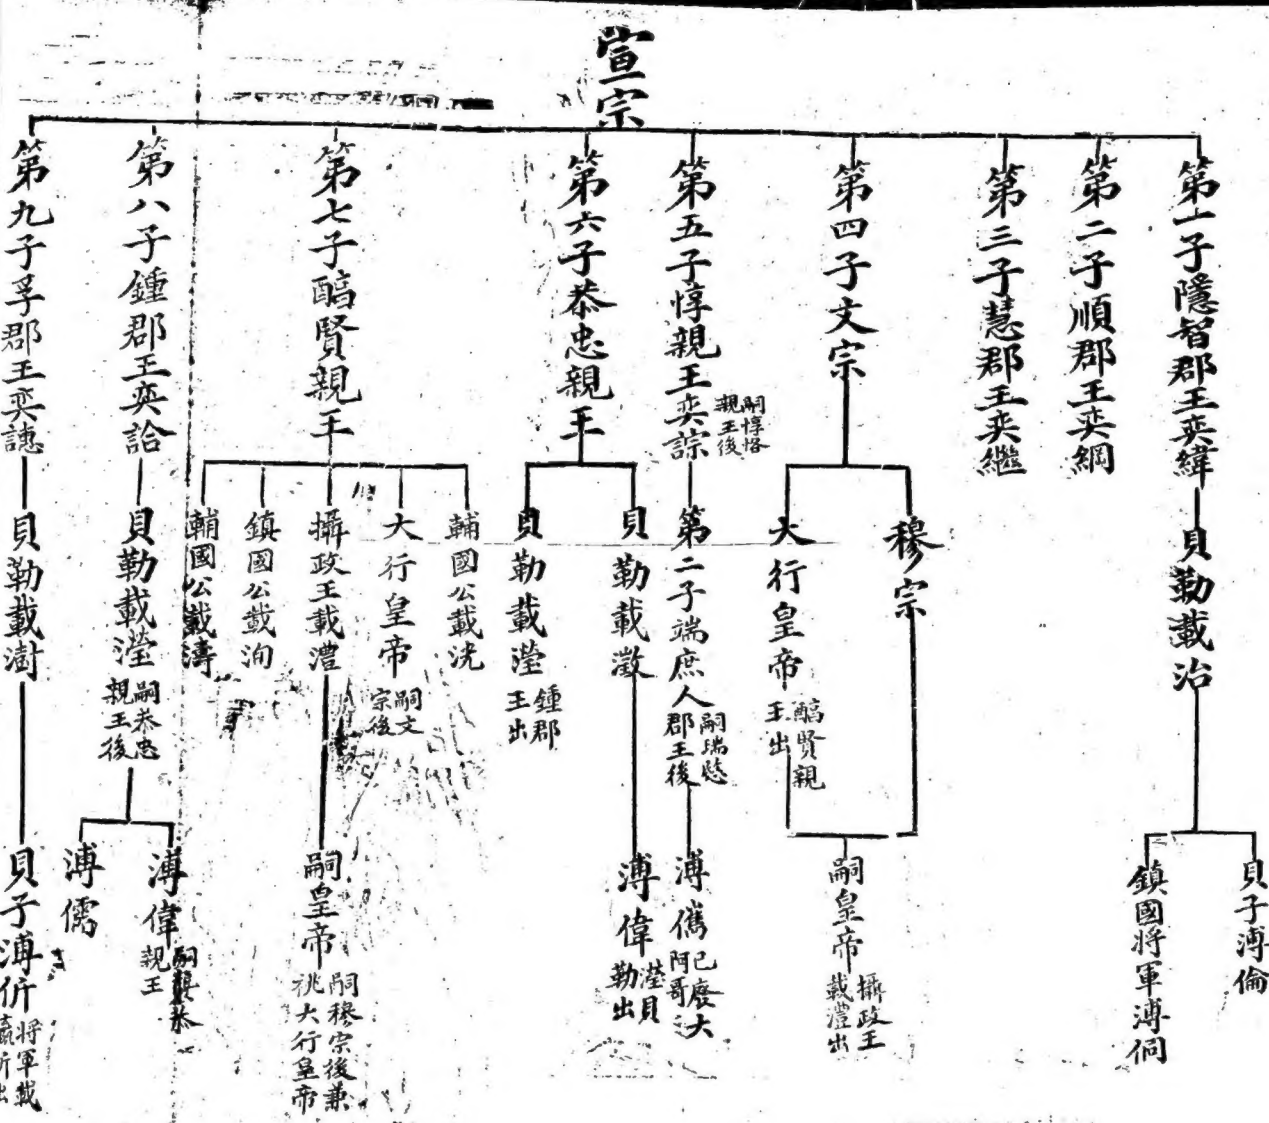 宣宗
第一子隱智郡王奕緯
貝勒載治
貝子溥倫
鎮國将軍溥侗
第二子順郡王奕綱
第三子慧郡王奕繼
第四子文宗
穆宗
大行皇帝
醕賢親
王出
嗣皇帝
攝政王
載灃出
第五子惇親王奕誴
嗣惇恪
親王後
第二子端庶人
嗣瑞慜
郡王後
溥儁
已廢大
阿哥
第六子恭忠親王
貝勒載澂
溥偉
瀅貝
勒出
貝勒載瀅
鍾郡
王出
第七子醕賢親王
輔國公載洸
大行皇帝
嗣文
宗後
攝政王載灃
嗣皇帝
嗣穆宗後兼
祧大行皇帝
鎮國公載洵
輔國公載濤
第八子鍾郡王奕詥
貝勒載瀅
嗣恭忠
親王後
溥偉
嗣襲恭
親王
溥儒
第九子孚郡王奕譓
貝勒載澍
貝子溥伒
将軍載